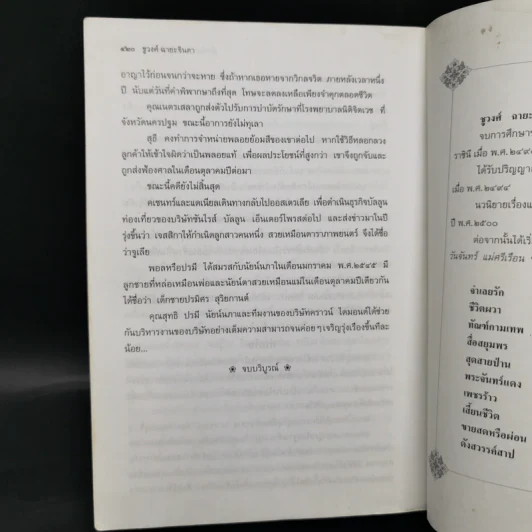 ๔๒๐ ชูวงศ์ ฉายะจินดา
อาญาไว้ก่อนจนกว่าจะหาย ซึ่งถ้าหากเธอหายจากวิกลจริต ภายหลังเวลาหนึ่ง
ปี นับแต่วันที่คำพิพากษาถึงที่สุด โทษจะลดลงเหลือเพียงจำคุกตลอดชีวิต
คุณเนตรเสลาถูกส่งตัวไปรับการบำบัดรักษาที่โรงพยาบาลนิติจิตเวช ที่
จังหวัดนครปฐม ขณะนี้อาการยังไม่ทุเลา
สุธี คงทำการจำหน่ายพลอยย้อมสีของเขาต่อไป หากใช้วิธีหลอกลวง
ลูกค้าให้เข้าใจผิดว่าเป็นพลอยแท้ เพื่อผลประโยชน์ที่สูงกว่า เขาจึงถูกจับและ
ถูกส่งฟ้องศาลในเดือนตุลาคมปีต่อมา
ขณะนี้คดียังไม่สิ้นสุด
คเชนทร์และแดเนียลเดินทางกลับไปออสเตรเลีย เพื่อดำเนินธุรกิจบัลลูน
ท่องเที่ยวของบริษัทซันไรส์ บัลลูน เอ็นเตอร์ไพรสต่อไป และส่งข่าวมาในปี
รุ่งขึ้นว่า เจสสิกาให้กำเนิดลูกสาวคนหนึ่ง สวยเหมือนดาราภาพยนตร์ จึงได้ชื่อ
ว่าจูเลีย
พอลหรือปรมี ได้สมรสกับนัยน์นภาในเดือนมกราคม พ.ศ.๒๕๔๕ มี
ลูกชายที่หล่อเหมือนพ่อและนัยน์ตาสวยเหมือนแม่ในเดือนตุลาคมปีเดียวกัน
ได้ชื่อว่า เด็กชายปรมิศร สุริยกานต์
คุณสุทธิ ปรมี นัยน์นภาและทีมงานของบริษัทคราวน์ ไดมอนด์ได้ช่วย
กันบริหารงานของบริษัทอย่างเต็มความสามารถจนค่อยๆเจริญรุ่งเรืองขึ้นทีละ
น้อย...
จบบริบูรณ์
ชูวงศ์ ฉายะ
จบการศึกษา
ราชินี เมื่อ พ.ศ. ๒๔๙
ได้รับปริญญา
เมื่อ พ.ศ.๒๔๙๔
นวนิยายเรื่องแ
ปี พ.ศ.๒๕๐๐
ต่อจากนั้นได้เริ่
วันจันทร์ แม่ศรีเรือน
จำเลยรัก
ชีวิตผวา
ทัณฑ์กามเทพ
สื่อสยุมพร
สุดสายป่าน
พระจันทร์แดง
เพชรร้าว
เสี้ยนชีวิต
ขายสดหรือผ่อน
ดังสวรรค์สาป